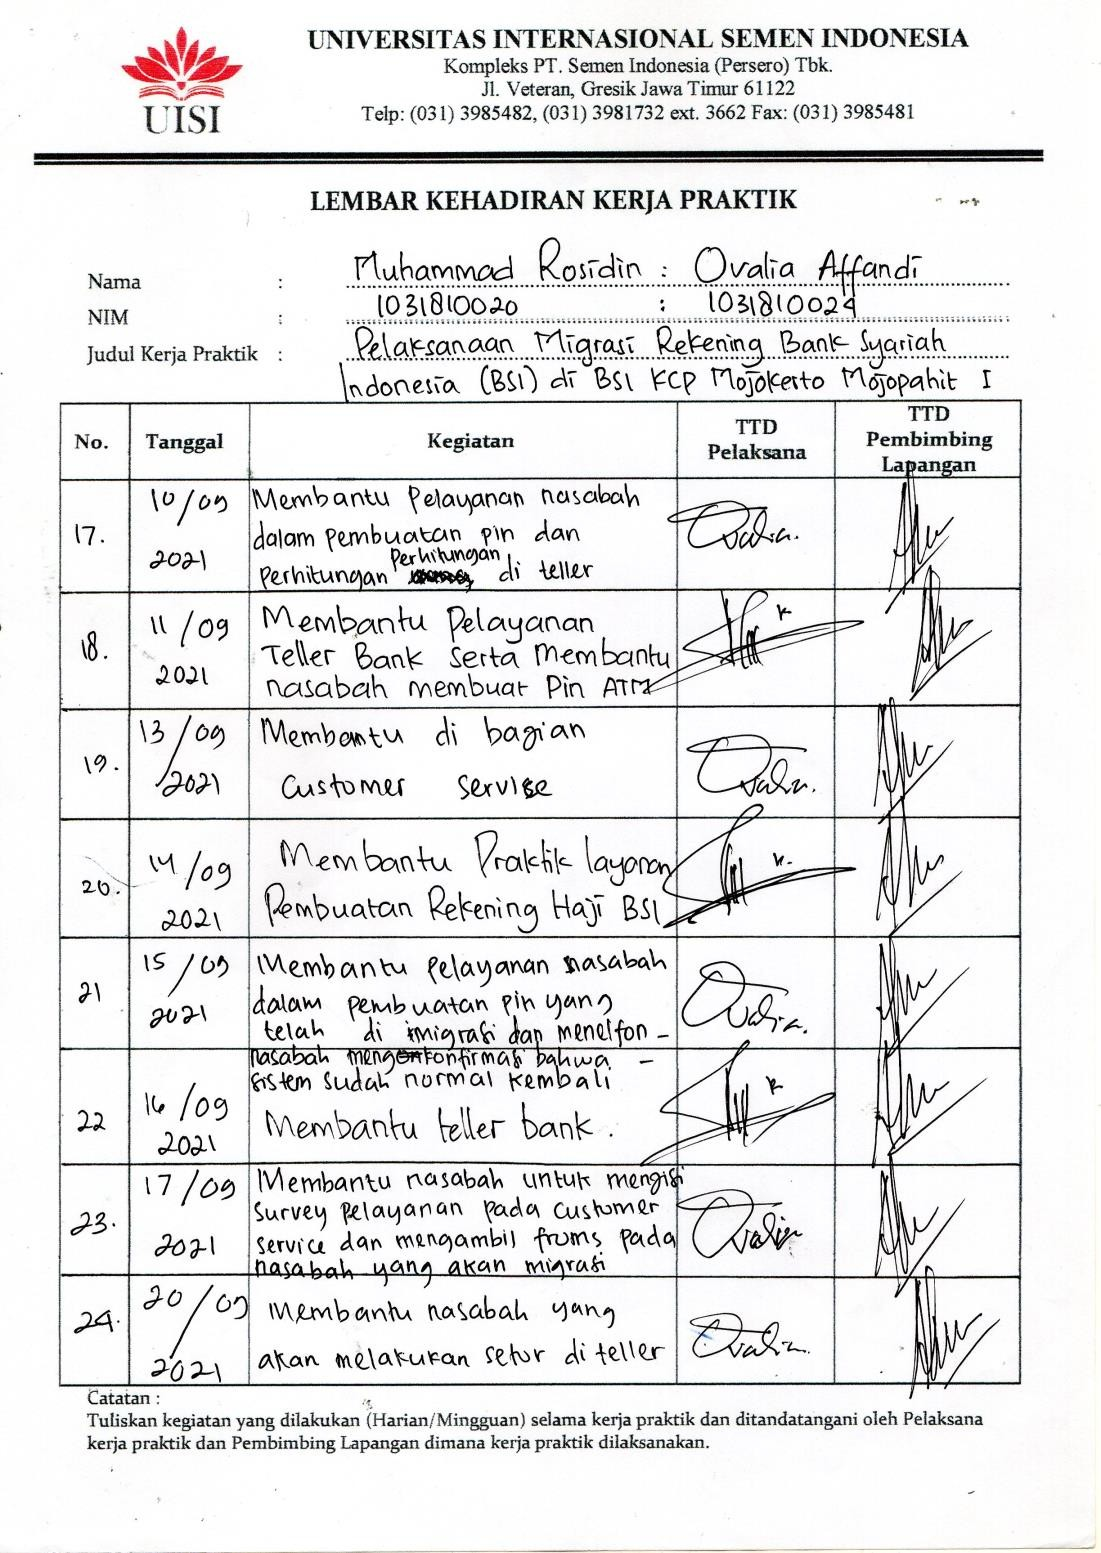 UISI
UNIVERSITAS INTERNASIONAL SEMEN INDONESIA
Kompleks PT. Semen Indonesia (Persero) Tbk.
Jl. Veteran, Gresik Jawa Timur 61122
Telp: (031) 3985482, (031) 3981732 ext. 3662 Fax: (031) 3985481
LEMBAR KEHADIRAN KERJA PRAKTIK
Nama : Muhammad Rosidin : Ovalia Affandi
NIM : 1031810020 : 1031810024
Judul Kerja Praktik : Pelaksanaan Migrasi Rekening Bank Syariah
Indonesia (BSI) di BSI KCP Mojokerto Mojopahit I
No. Tanggal Kegiatan TTD Pelaksana TTD Pembimbing Lapangan
17. 10/09 2021 Membantu Pelayanan nasabah
dalam pembuatan pin dan
perhitungan perhitungan di teller
Ovalia.
18. 11/09 2021 Membantu Pelayanan
Teller Bank serta membantu
nasabah membuat Pin ATM
19. 13/09 2021 Membantu di bagian
Customer service
Ovalia.
20. 14/09 2021 Membantu Praktik layanan
Pembuatan Rekening Haji BSI
21 15/09 2021 Membantu pelayanan nasabah
dalam pembuatan pin yang
telah di imigrasi dan menelfon -
nasabah mengkonfirmasi bahwa -
sistem sudah normal kembali
Ovalia.
22 16/09 2021 Membantu teller bank.
23. 17/09 2021 Membantu nasabah untuk mengisi
survey pelayanan pada customer
service dan mengambil frums pada
nasabah yang akan migrasi
Ovalia
24. 20/09 2021 Membantu nasabah yang
akan melakukan setor di teller
Ovalia.
Catatan :
Tuliskan kegiatan yang dilakukan (Harian/Mingguan) selama kerja praktik dan ditandatangani oleh Pelaksana
kerja praktik dan Pembimbing Lapangan dimana kerja praktik dilaksanakan.